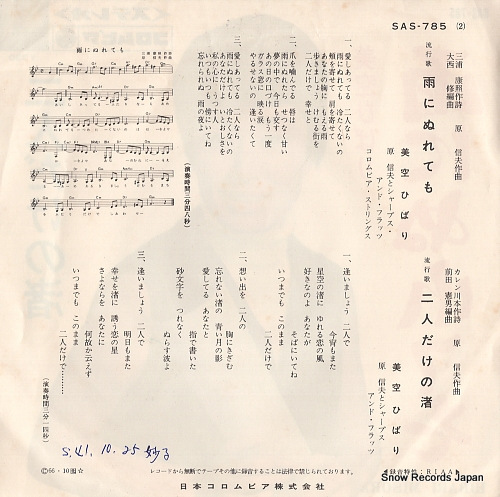 SAS-785 (2)
三浦康照作詩 原信夫作曲
大西修編曲
流行歌 雨にぬれても
美空ひばり
原信夫とシャープス・アンド・フラッツ
コロムビア・ストリングス
一、愛しあってる 二人なら
雨にぬれても 冷たくないの
頬を寄せて 肩を寄せて
あなたの胸に もえる雨
歩きましょう けむる街を
二人だけで 幸せと
二、爪を噛んでる 唇は
雨にぬれたら せつなく甘い
夢の中で 今日も交す
あの日の口づけ もう一度
ガラス窓に 映る涙
あなたせないの 逢いたくて
三、愛しあってる 二人なら
雨にぬれても 冷たくないの
あなただけよ いとおしさを
私の心に つす人
いつもいつも 傍にいてね
忘れられぬ 雨の夜
(演奏時間三分四八秒)
雨にぬれても
カレン川本作詩 原信夫作曲
前田憲男編曲
流行歌 二人だけの渚
美空ひばり
原信夫とシャープス・アンド・フラッツ
一、逢いましょう 二人で
今宵もまた
星空の渚に ゆれる恋の風
好きなのよ あなたが
そばにいてね
いつまでも このまま
二人だけで
二、想い出を 二人の
胸にきざむ
忘れない渚の 青い月の影
愛してる あなたと
指で書いた
砂文字を つれなく
ぬらす波よ
三、逢いましょう 二人で
明日もまた
幸せを渚に 誘う恋の星
さよならを あなたに
何故か云えず
いつまでも このまま
二人だけで………
(演奏時間三分一四秒)
S.41.10.25 妙子
Ⓒ66・10図☆
レコードから無断でテープその他に録音することは法律で禁じられています。
<録音特性:RIAA>
日本コロムビア株式会社
Snow Records Japan
www.snowrecords.jp